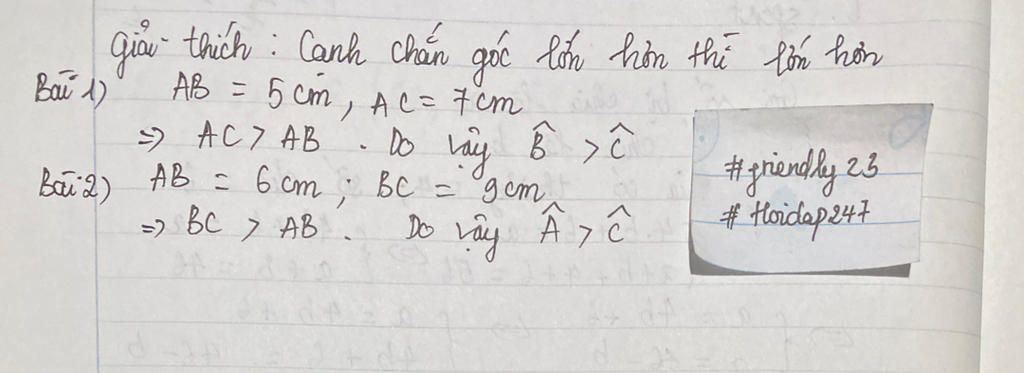 Giải thích : Cạnh chắn góc lớn hơn thì lớn hơn
Bài 1) AB = 5 cm , AC = 7 cm
=> AC > AB . Do vậy B̂ > Ĉ
Bài 2) AB = 6 cm , BC = 9 cm
=> BC > AB . Do vậy Â > Ĉ
#friendly 23
# Hoidap247